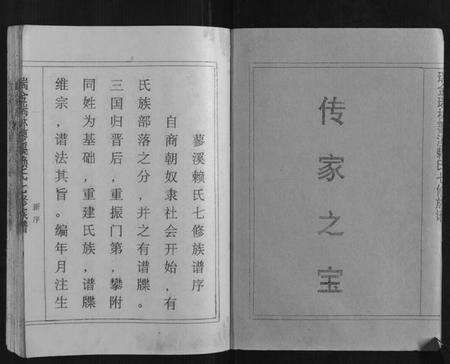 传家之宝
蓼溪赖氏七修族谱序
自商朝奴隶社会开始，有
氏族部落之分，并之有谱牒。
三国归晋后，重振门第，攀附
同姓为基础，重建氏族，谱牒
维宗，谱法其旨。编年月注生
新序